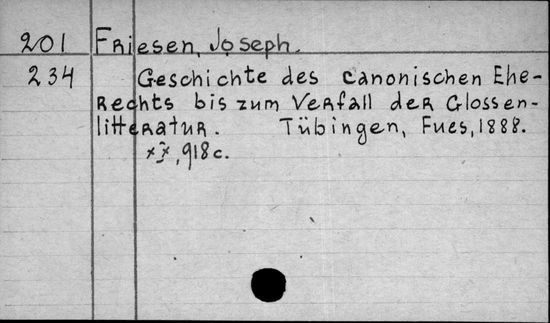 201 Friesen, Joseph.
234 Geschichte des canonischen Ehe-
Rechts bis zum Verfall der Glossen-
litteratur. Tübingen, Fues, 1888.
918 c.